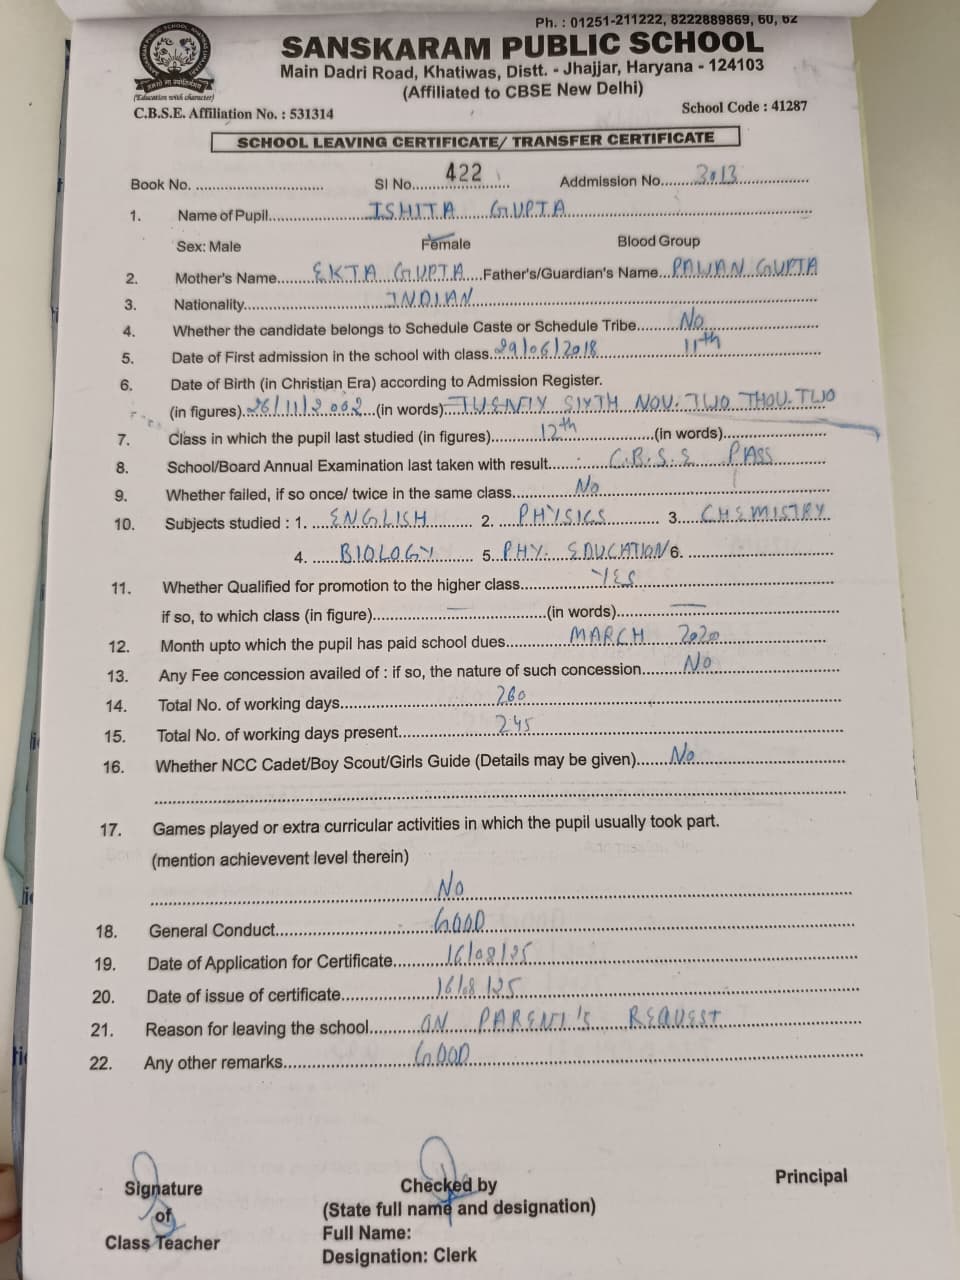 Ph. : 01251-211222, 8222889869, 60, 62
SANSKARAM PUBLIC SCHOOL
Main Dadri Road, Khatiwas, Distt. - Jhajjar, Haryana - 124103
(Affiliated to CBSE New Delhi)
(Education with character)
C.B.S.E. Affiliation No. : 531314
School Code : 41287
SCHOOL LEAVING CERTIFICATE/ TRANSFER CERTIFICATE
Book No. ............ SI No. 422 Addmission No. 3013
1. Name of Pupil ISHITA GUPTA
Sex: Male Female Blood Group
2. Mother's Name EKTA GUPTA Father's/Guardian's Name PAWAN GUPTA
3. Nationality INDIAN
4. Whether the candidate belongs to Schedule Caste or Schedule Tribe No
5. Date of First admission in the school with class 29/06/2018 11th
6. Date of Birth (in Christian Era) according to Admission Register.
(in figures) 26/11/2002 (in words) TWENTY SIXTH NOV. TWO THOU. TWO
7. Class in which the pupil last studied (in figures) 12th (in words)
8. School/Board Annual Examination last taken with result C.B.S.E PASS
9. Whether failed, if so once/ twice in the same class No
10. Subjects studied : 1. ENGLISH 2. PHYSICS 3. CHEMISTRY
4. BIOLOGY 5. PHY. EDUCATION 6.
11. Whether Qualified for promotion to the higher class YES
if so, to which class (in figure) — (in words) —
12. Month upto which the pupil has paid school dues MARCH 2020
13. Any Fee concession availed of : if so, the nature of such concession No
14. Total No. of working days 260
15. Total No. of working days present 245
16. Whether NCC Cadet/Boy Scout/Girls Guide (Details may be given) No
17. Games played or extra curricular activities in which the pupil usually took part.
(mention achievevent level therein)
No
18. General Conduct GOOD
19. Date of Application for Certificate 16/08/25
20. Date of issue of certificate 16/08/25
21. Reason for leaving the school ON PARENT'S REQUEST
22. Any other remarks GOOD
Signature
of
Class Teacher
Checked by
(State full name and designation)
Full Name:
Designation: Clerk
Principal